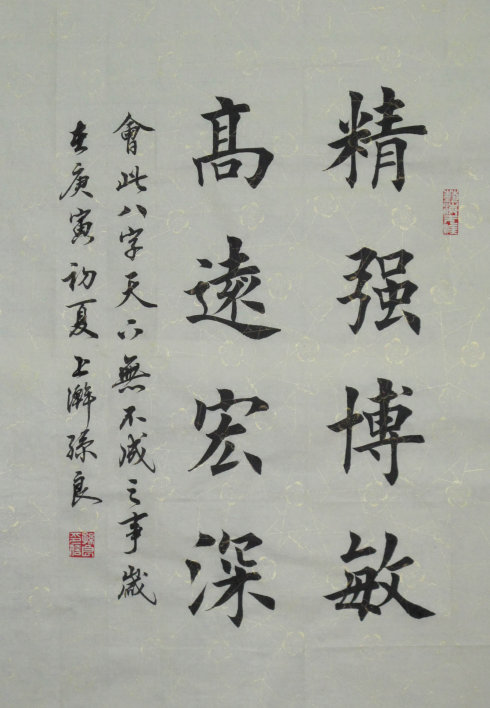 精强博敏
髙遠宏深
會此八字天下無不成之事歲
在庚寅初夏上澣孫良